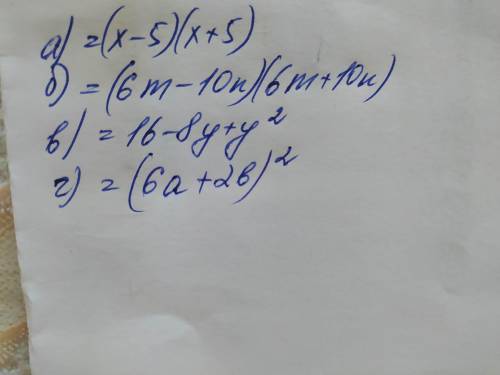 а) = (x-5)(x+5)
б) = (6m-10n)(6m+10n)
в) = 16-8y+y²
г) = (6a+2b)²